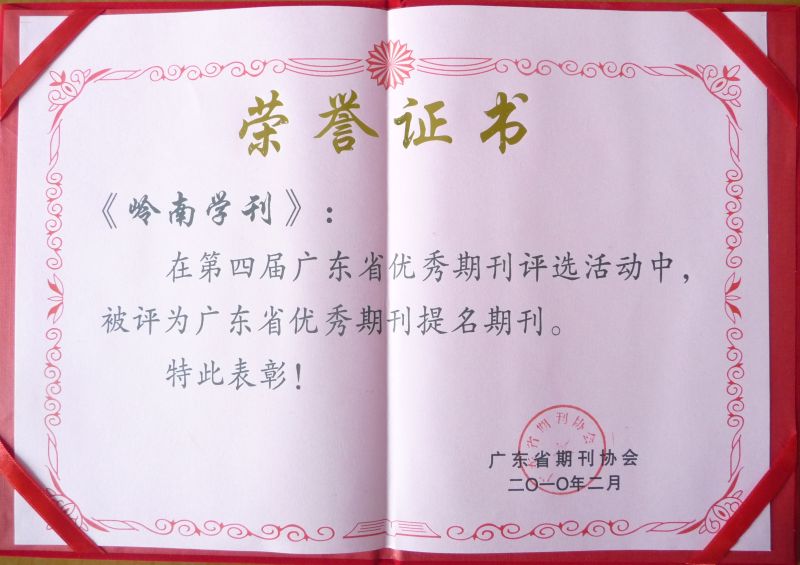 荣誉证书
《岭南学刊》：
在第四届广东省优秀期刊评选活动中，
被评为广东省优秀期刊提名期刊。
特此表彰！
广东省期刊协会
二〇一〇年二月
广东省期刊协会